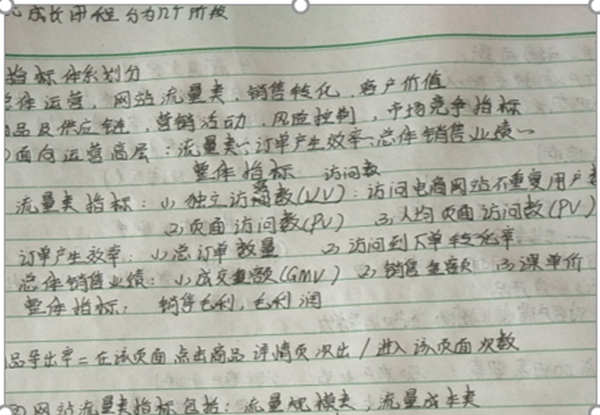 成长历程分为几个阶段
指标体系划分
总体运营、网站流量类、销售转化、客户价值
商品及供应链、营销活动、风险控制、市场竞争指标
面向运营高层:流量类、订单产生效率、总体销售业绩、
整体指标 访问数
流量类指标:(1)独立访客数(UV):访问电商网站不重复用户数
(2)页面访问数(PV) (3)人均页面访问数(PV)
订单产生效率:(1)总订单数量 (2)访问到下单转化率
总体销售业绩:(1)成交金额(GMV) (2)销售金额 (3)课单价
整体指标: 销售毛利,毛利润
品导出率=在该页面点击商品详情页次出/进入该页面次数
网站流量类指标包括:流量规模类,流量成本类